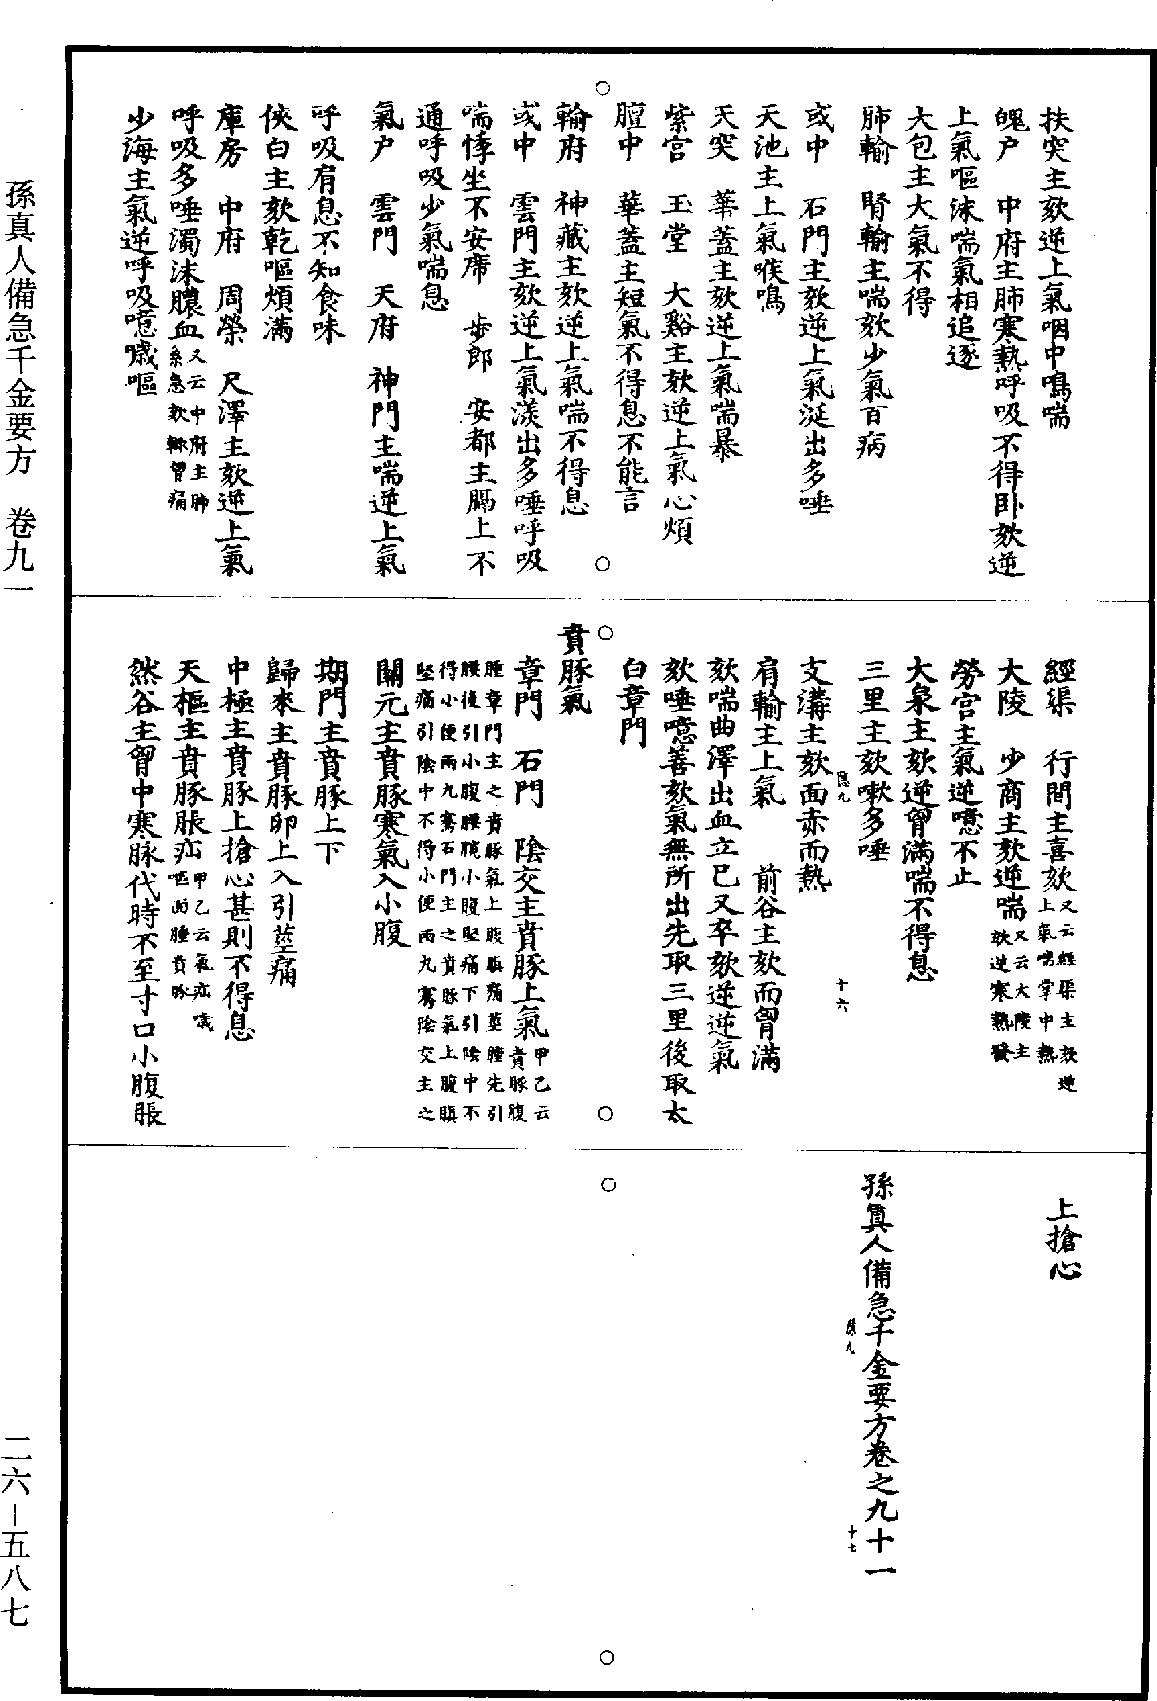 扶突主欬逆上氣咽中鳴喘
魄户　中府主肺寒熱呼吸不得卧欬逆
上氣嘔沫喘氣相追逐
大包主大氣不得
肺輸　腎輸主喘欬少氣百病
或中　石門主欬逆上氣涎出多唾
天池主上氣喉鳴
天突　華蓋主欬逆上氣喘暴
紫宫　玉堂　大谿主欬逆上氣心煩
膻中　華蓋主短氣不得息不能言
輸府　神藏主欬逆上氣喘不得息
或中　雲門主欬逆上氣漾出多唾呼吸
喘悸坐不安席　步郎　安都主膈上不
通呼吸少氣喘息
氣户　雲門　天府　神門主喘逆上氣
呼吸肩息不知食味
俠白主欬乾嘔煩滿
庫房　中府　周榮　尺澤主欬逆上氣
呼吸多唾濁沫膿血又云中府主肺系急欬輙胷痛
少海主氣逆呼吸噫噦嘔
經渠　行間主喜欬又云經渠主欬逆上氣喘掌中熱
大陵　少商主欬逆喘又云大陵主欬逆寒熱發
勞宫主氣逆噫不止
大泉主欬逆胷滿喘不得息
三里主欬嗽多唾
支溝主欬面赤而熱
肩輸主上氣　前谷主欬而胷滿
欬喘曲澤出血立已又卒欬逆逆氣
欬唾噫善欬氣無所出先取三里後取太
白章門
賁豚氣
章門　石門　陰交主賁豚上氣甲乙云賁豚腹
腫章門主之賁豚氣上腹䐜痛莖腫先引
腰後引小腹腰髖小腹堅痛下引陰中不
得小便兩丸騫石門主之賁豚氣上腹䐜
堅痛引陰中不得小便兩丸騫陰交主之
關元主賁豚寒氣入小腹
期門主賁豚上下
歸來主賁豚卵上入引莖痛
中極主賁豚上搶心甚則不得息
天樞主賁豚脹疝甲乙云氣疝噦嘔面腫賁豚
然谷主胷中寒脉代時不至寸口小腹脹
上搶心
孫真人備急千金要方卷之九十一
十六
十七
孫真人備急千金要方　卷九一
二六－五八七